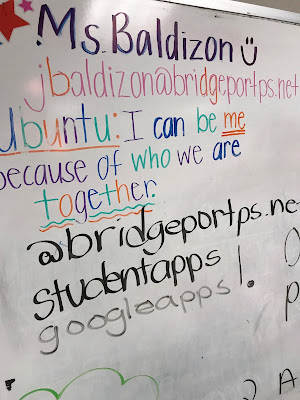 Ms. Baldizon
jbaldizon@bridgeportps.net
Ubuntu: I can be me
because of who we are
together.
@bridgeportps.net
studentapps!.
googleapps
A